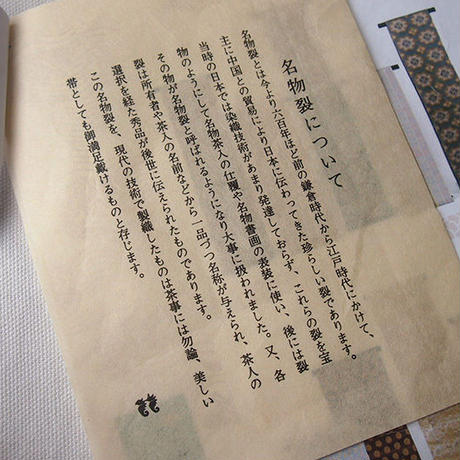 名物裂について
名物裂とは今より六百年ほど前の鎌倉時代から江戸時代にかけて、
主に中国との貿易により日本に伝わってきた珍らしい裂であります。
当時の日本では染織技術があまり発達しておらず、これらの裂を宝
物のようにして名物茶人の仕覆や名物書画の表装に使い、後には裂
その物が名物裂と呼ばれるようになり大事に扱われました。又、各
裂は所有者や茶人の名前などから一品づつ名称が与えられ、茶人の
選択を経た秀品が後世に伝えられたものであります。
この名物裂を、現代の技術で製織したものは茶事には勿論、美しい
帯としても御満足戴けるものと存じます。